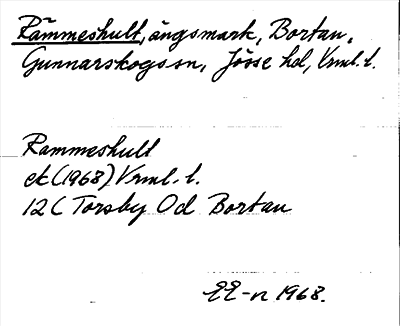 Rämmeshult, ängsmark, Bortan,
Gunnarskogs sn, Jösse hd, Vrml. l.
Rammeshult
ek (1968) Vrml. l.
12 C Torsby Od Bortan
EE-n 1968.